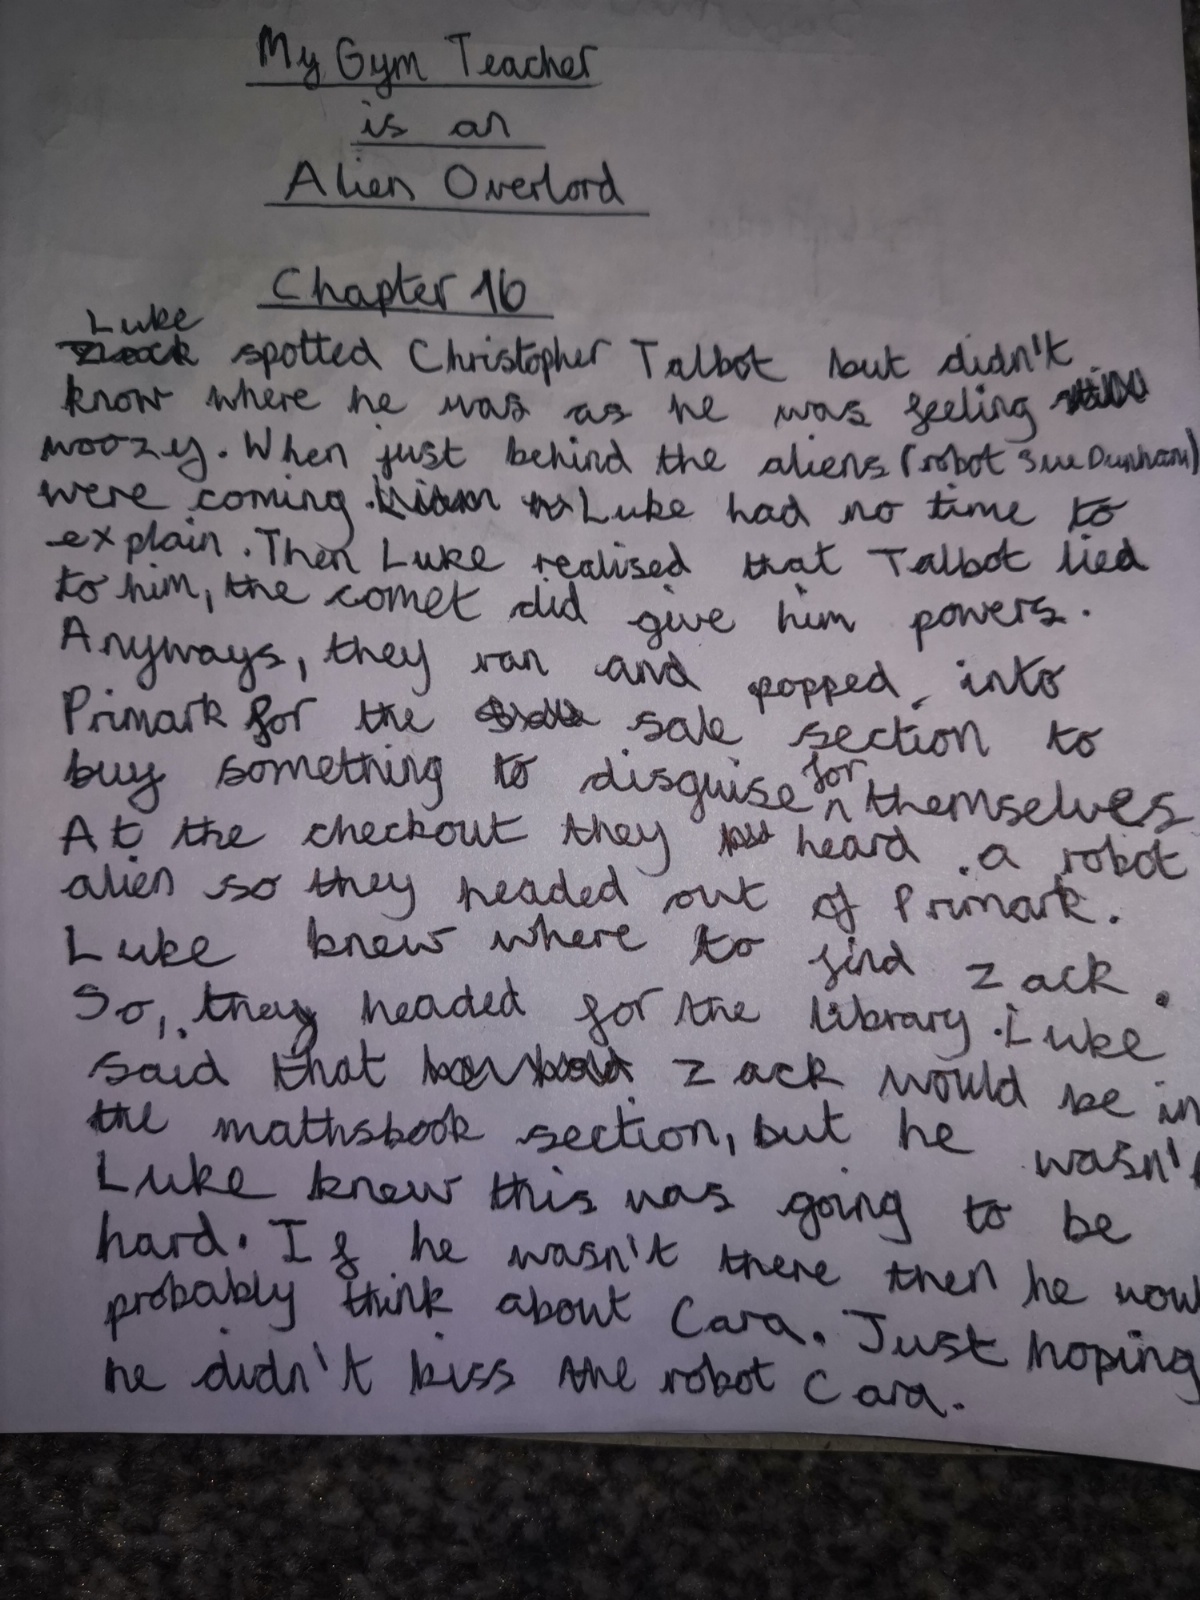 My Gym Teacher
is an
Alien Overlord
Chapter 16
Luke
Zack spotted Christopher Talbot but didn't
know where he was as he was feeling
woozy. When just behind the aliens (robot Sue Dunham)
were coming. Luke had no time to
explain. Then Luke realised that Talbot lied
to him, the comet did give him powers.
Anyways, they ran and popped into
Primark for the sale section to
buy something to disguise for themselves
At the checkout they heard a robot
alien so they headed out of Primark.
Luke knew where to find Zack.
So, they headed for the library. Luke
said that Zack would be in
the mathsbook section, but he wasn't
Luke knew this was going to be
hard. If he wasn't there then he woul
probably think about Cara. Just hoping
he didn't kiss the robot Cara.